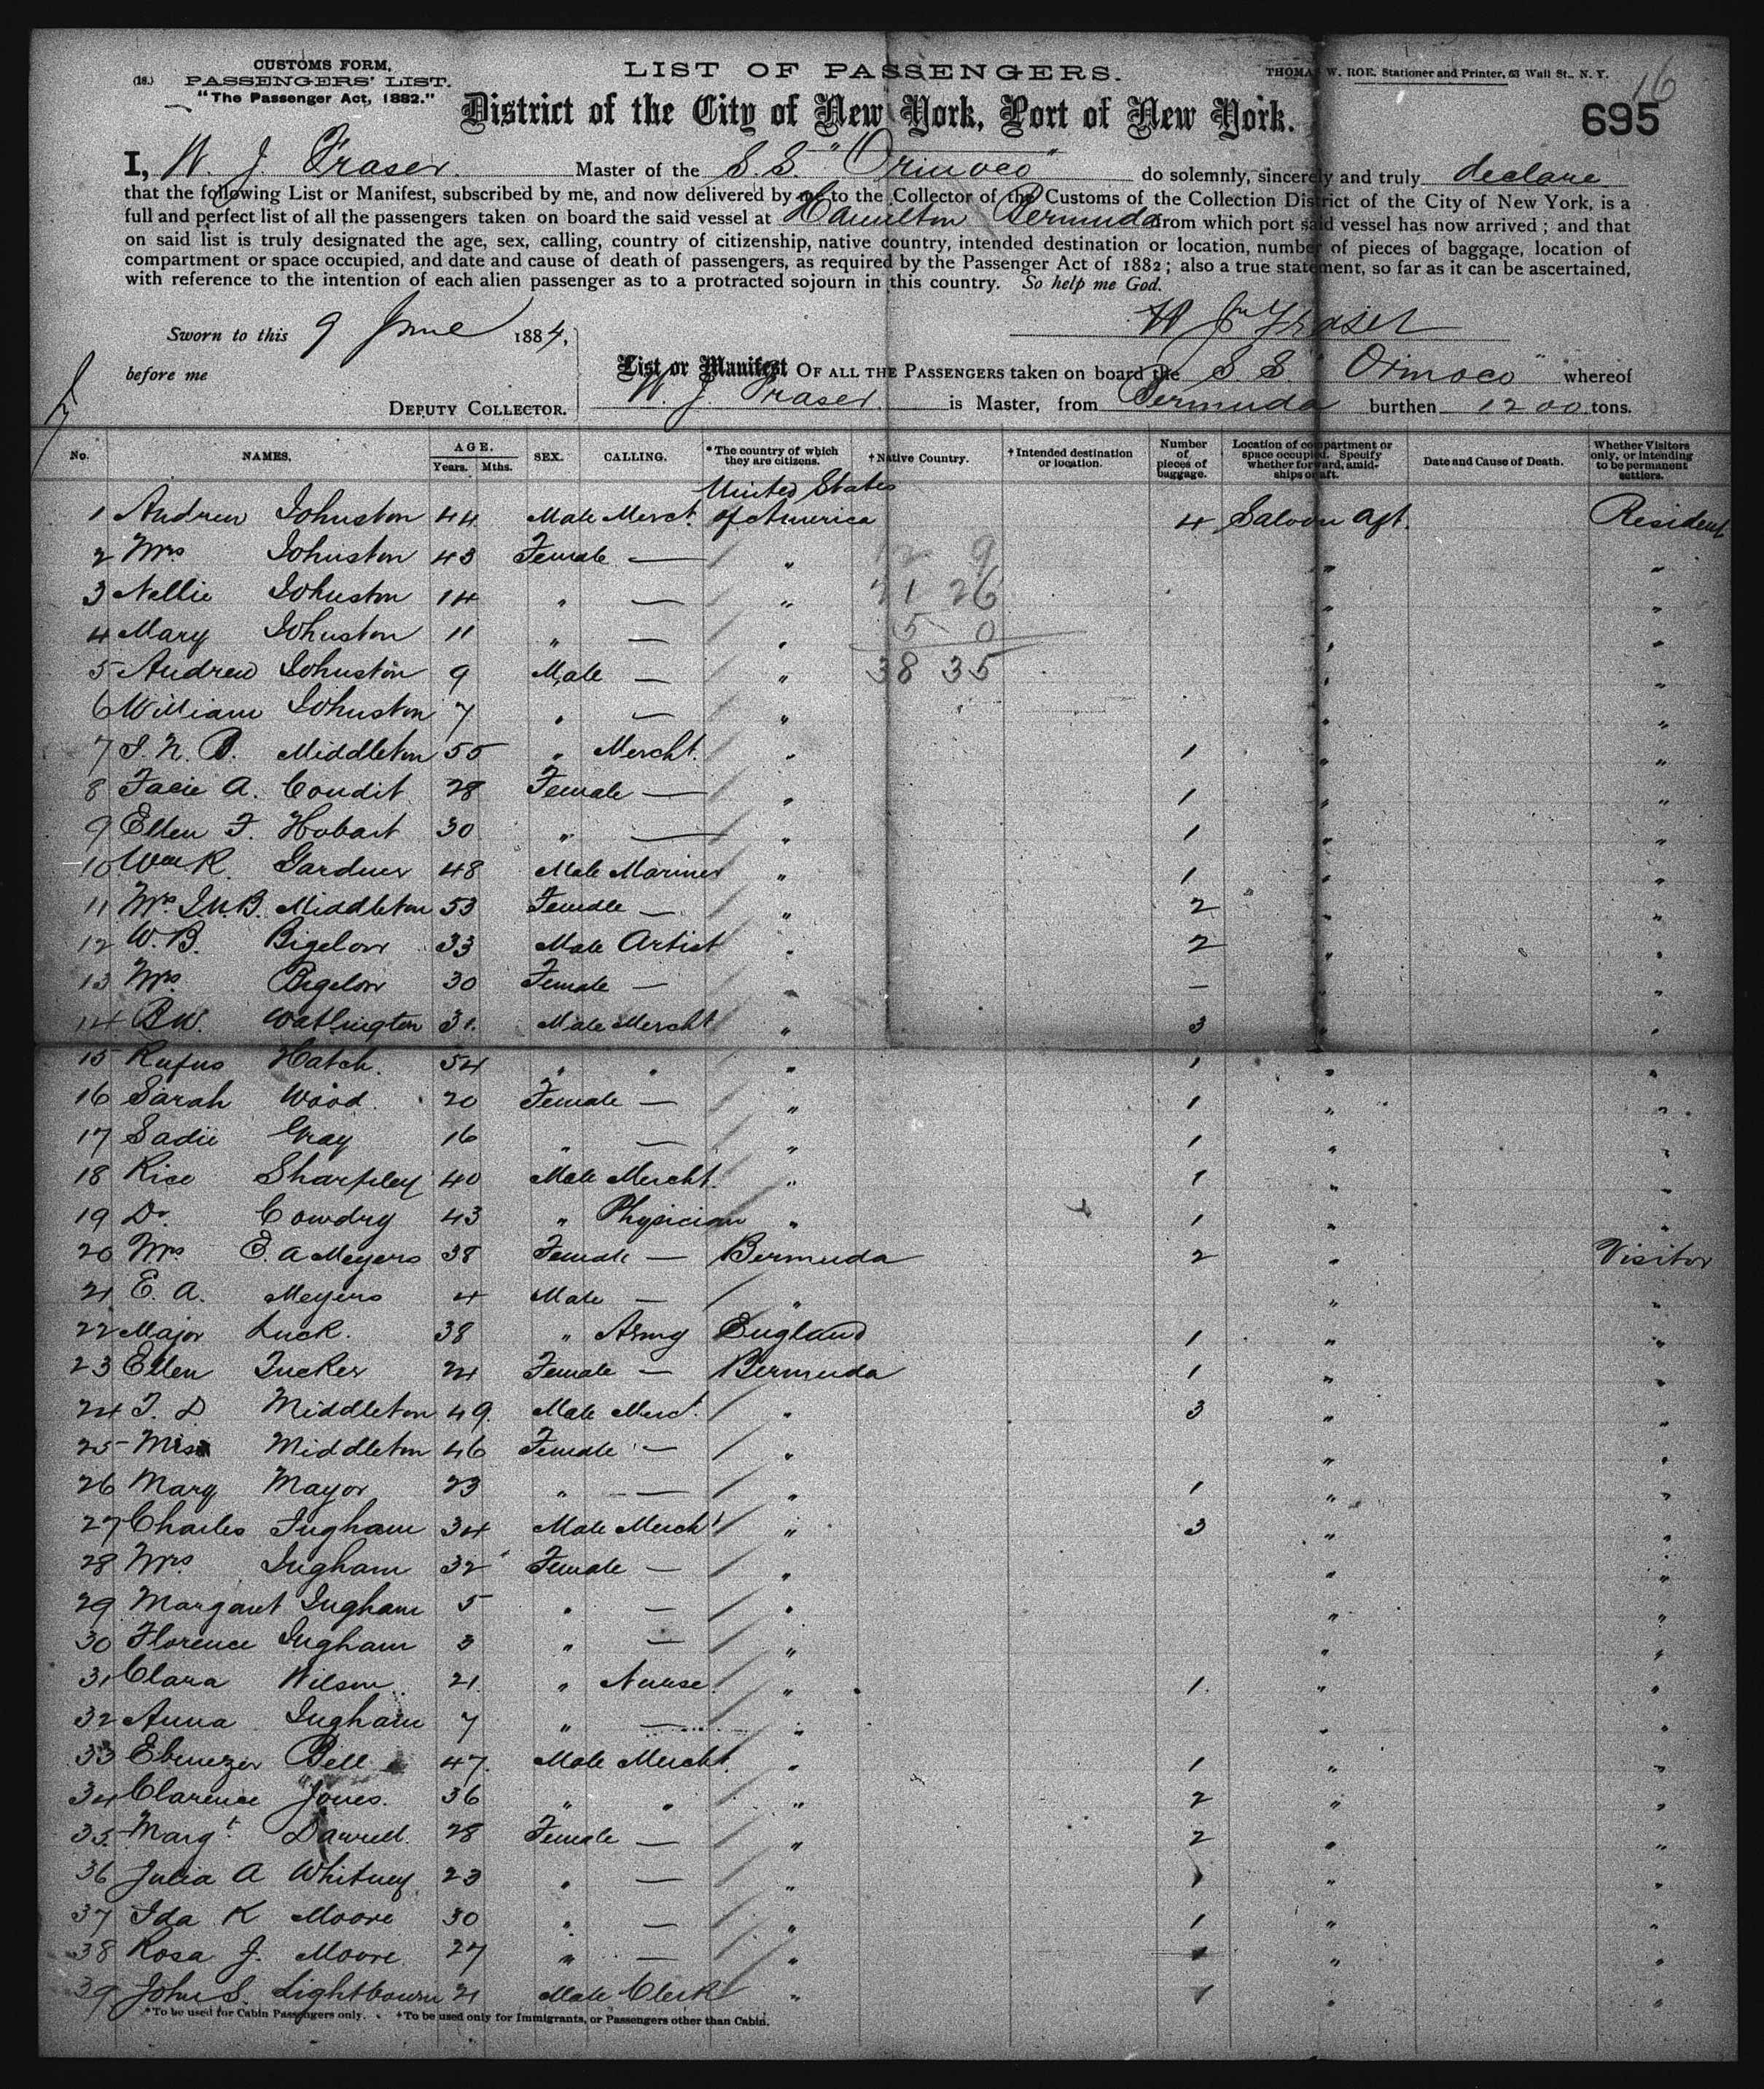 CUSTOMS FORM,
(18.) PASSENGERS' LIST.
"The Passenger Act, 1882."
LIST OF PASSENGERS.
THOMAS W. ROE, Stationer and Printer, 63 Wall St., N. Y.
16
695
District of the City of New York, Port of New York.
I, W. J. Fraser Master of the S.S. "Orinoco" do solemnly, sincerely and truly declare
that the following List or Manifest, subscribed by me, and now delivered by me to the Collector of the Customs of the Collection District of the City of New York, is a
full and perfect list of all the passengers taken on board the said vessel at Hamilton Bermuda from which port said vessel has now arrived; and that
on said list is truly designated the age, sex, calling, country of citizenship, native country, intended destination or location, number of pieces of baggage, location of
compartment or space occupied, and date and cause of death of passengers, as required by the Passenger Act of 1882; also a true statement, so far as it can be ascertained,
with reference to the intention of each alien passenger as to a protracted sojourn in this country. So help me God.
Sworn to this 9 June 1884,
W Jn Fraser
before me
DEPUTY COLLECTOR.
List or Manifest OF ALL THE PASSENGERS taken on board the S.S. "Orinoco" whereof
W. J. Fraser is Master, from Bermuda burthen 1200 tons.
No. NAMES. AGE. Years. Mths. SEX. CALLING. *The country of which they are citizens. †Native Country. †Intended destination or location. Number of pieces of baggage. Location of compartment or space occupied. Specify whether forward, amidships or aft. Date and Cause of Death. Whether Visitors only, or intending to be permanent settlers.
1 Andrew Johnston 44 Male Merct. United States of America 4 Saloon Aft. Resident
2 Mrs Johnston 43 Female — " " "
12 9
3 Nellie Johnston 14 " — " " "
21 26
4 Mary Johnston 11 " — " " "
5 0
5 Andrew Johnston 9 Male — " " "
38 35
6 William Johnston 7 " — " " "
7 J. N. B. Middleton 55 " Mercht. " 1 " "
8 Facie A. Condit 28 Female — " 1 " "
9 Ellen F. Hobart 30 " — " 1 " "
10 Wm R. Gardner 48 Male Mariner " 1 " "
11 Mrs J.N.B. Middleton 53 Female — " 2 " "
12 W. B. Bigelow 33 Male Artist " 2 " "
13 Mrs. Bigelow 30 Female — " — " "
14 B W. Watlington 31. Male Mercht " 3 " "
15 Rufus Hatch. 54 " " " 1 " "
16 Sarah Wood. 20 Female — " 1 " "
17 Sadie Gray 16 " — " 1 " "
18 Rice Sharpley 40 Male Mercht. " 1 " "
19 Dr. Cowdry 43 " Physician " 1 " "
20 Mrs E. A Meyers 38 Female — Bermuda 2 " Visitor
21 E. A. Meyers 4 Male — " " "
22 Major Luck. 38 " Army England 1 " "
23 Ellen Tucker 24 Female — Bermuda 1 " "
24 T. D. Middleton 49. Male Merct. " 3 " "
25 Mrs Middleton 46 Female — " " "
26 Mary Mayor 23 " — " 1 " "
27 Charles Ingham 34 Male Mercht " 3 " "
28 Mrs. Ingham 32 Female — " " "
29 Margaret Ingham 5 " — " " "
30 Florence Ingham 3 " — " " "
31 Clara Wilson. 21. " Nurse. " 1. " "
32 Anna Ingham 7 " — " " "
33 Ebenezer Bell 47. Male Mercht. " 1 " "
34 Clarence Jones. 36 " " " 2 " "
35. Margt. Darrell. 28 Female — " 2 " "
36 Julia A Whitney 23 " — " 1 " "
37 Ida K Moore 30 " — " 1 " "
38 Rosa J. Moore 27 " — " " "
39 John S. Lightbourn 21 Male Clerk " 1 " "
*To be used for Cabin Passengers only. †To be used only for Immigrants, or Passengers other than Cabin.